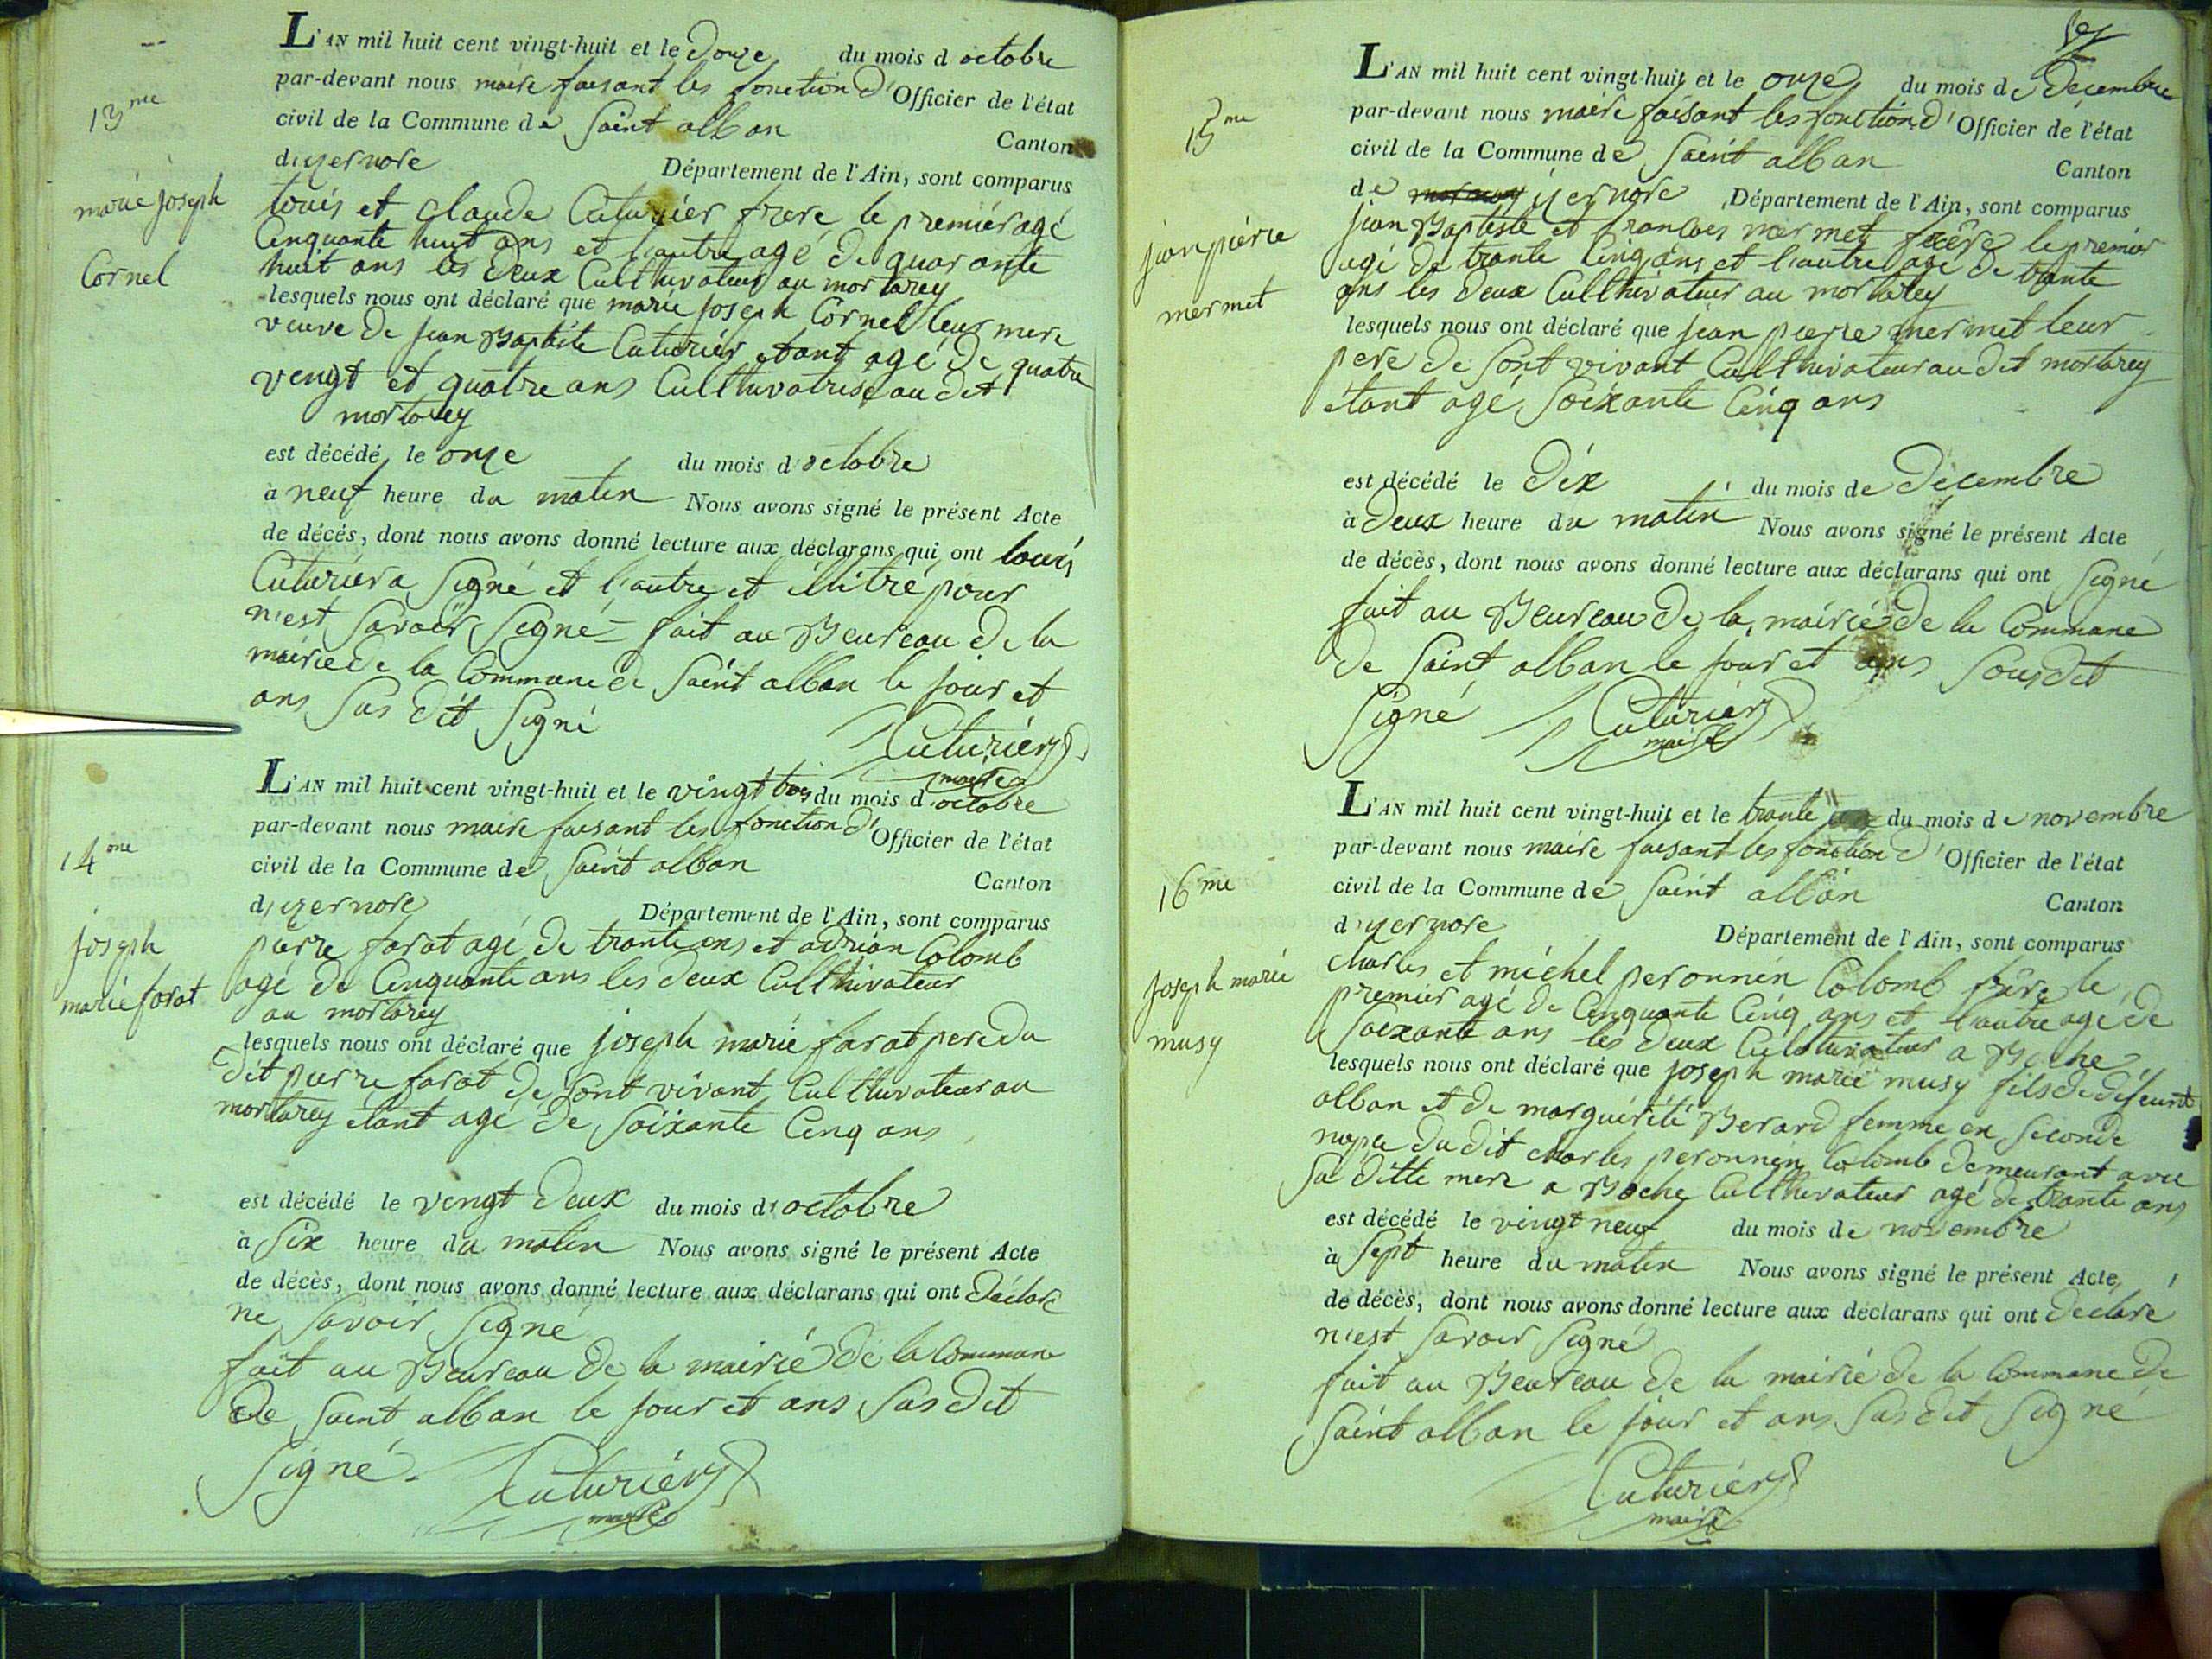 13me
marie joseph
Cornel
L'AN mil huit cent vingt-huit et le douze du mois d octobre
par-devant nous maire faisant les fonction d'Officier de l'état
civil de la Commune de Saint alban Canton
d'izernore Département de l'Ain, sont comparus
louis et claude Cuturier frere le premier agé
Cinquante huit ans et l'autre agé de quarante
huit ans les deux Culthivateur au mortarey
lesquels nous ont déclaré que marie joseph Cornel leur mere
veuve de jean Baptiste Cuturier etant agé de quatre
vengt et quatre ans Culthivatrise au dit
mortarey
est décédé le onze du mois d'octobre
à neuf heure du maten Nous avons signé le présent Acte
de décés, dont nous avons donné lecture aux déclarans qui ont louis
Cuturier a Signé et l'autre et illitré pour
n'est Savoir Signé = fait au Beureau de la
mairie de la Commune de Saint alban le jour et
ans Sus dit Signé
Cuturier
maire
14me
joseph
marie farat
L'AN mil huit cent vingt-huit et le vingt trois du mois d'octobre
par-devant nous maire faisant les fonction d'Officier de l'état
civil de la Commune de Saint alban Canton
d'izernore Département de l'Ain, sont comparus
pierre farat agé de trante ans et adrian Colomb
agé de Cinquante ans les deux Culthivateur
au mortarey
lesquels nous ont déclaré que joseph marie farat pere du
dit pierre farat de Sont vivant Culthivateur au
mortarey étant agé de Soixante Cinq ans
est décédé le vengt deux du mois d'octobre
à Six heure du matin Nous avons signé le présent Acte
de décès, dont nous avons donné lecture aux déclarans qui ont déclaré
ne Savoir Signé
fait au Beureau de la mairie de la Commune
de Saint alban le jour et ans Sus dit
Signé.
Cuturier
maire
15me
jean piérre
mermet
L'AN mil huit cent vingt-huit et le onze du mois de décembre
par-devant nous maire faisant les fonction d'Officier de l'état
civil de la Commune de Saint alban Canton
de izernore Département de l'Ain, sont comparus
jean Baptiste et francois mermet frére le premier
agé de trante Cinq ans et l'autre agé de trante
ans les deux Culthivateur au mortarey
lesquels nous ont déclaré que jean pierre mermet leur
pere de Sont vivant Culthivateur au dit mortarey
étant agé Soixante Cinq ans
est décédé le dix du mois de décembre
à deux heure du matin Nous avons signé le présent Acte
de décès, dont nous avons donné lecture aux déclarans qui ont Signé
fait au Beureau de la mairie de la Commune
de Saint alban le jour et ans Sousdit
Signé Cuturier
maire
16me
joseph marie
musy
L'AN mil huit cent vingt-huit et le trante du mois de novembre
par-devant nous maire faisant les fonction d'Officier de l'état
civil de la Commune de Saint alban Canton
d'izernore Département de l'Ain, sont comparus
charles et michel peronnin Colomb frére le
premier agé de Cinquante Cinq ans et l'autre agé de
Soixante ans les deux Culthivateur a Boche
lesquels nous ont déclaré que joseph marie musy fils de défeunt
alban et de marguérite Berard femme en Seconde
nopce du dit charles peronnin Colomb demeurant avec
Sa ditte mere a Boche Culthivateur agé de trante ans
est décédé le vingt neuf du mois de novembre
à Sept heure du matin Nous avons signé le présent Acte
de décès, dont nous avons donné lecture aux déclarans qui ont declaré
n'est Savoir Signé
fait au Beureau de la mairie de la Commune de
Saint alban le jour et ans Sus dit Signé
Cuturier
maire